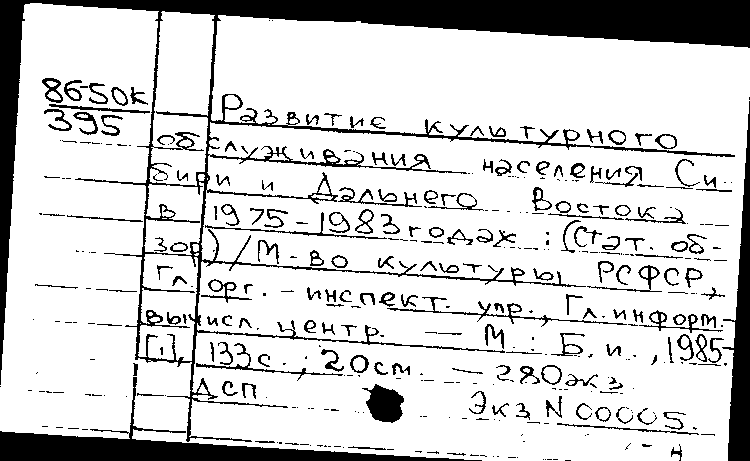 8650к
395
Развитие культурного
обслуживания населения Си-
бири и Дальнего Востока
в 1975-1983 годах : (Стат. об-
зор) / М-во культуры РСФСР,
Гл. орг.-инспект. упр., Гл. информ.-
вычисл. центр. — М : Б.и., 1985.-
[1], 133 с. ; 20 см. — 280 экз.
ДСП. Экз N 00005.
- н